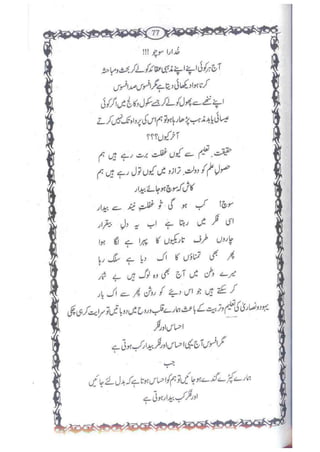 77
خدارا سوچو !!!
آج ہر کوئی اپنے اپنے مذہبی عقائد کو لے کر بحث و مباحثہ
کرتا ہوا دیکھائی دیتا ہے مگر افسوس صد افسوس
اپنے ننھے سے پھول کو لے کر جسے سکول و کالج میں اگر کوئی
عیسائی یا بد مذہب پڑھا رہا ہو تو ہم اس کی پرواہ تک نہیں کرتے
آخر کیوں؟؟؟
حقیقت تعلیم سے کیوں غفلت برت رہے ہیں ہم
حصولِ علم کو دولت ترازو میں کیوں تول رہے ہیں ہم
کاش کہ سوچ ہو جائے بیدار
سوچ! کب ہو گی تو غفلتِ نیند سے بیدار
اسی فکر میں رہتا ہے اب یہ دلِ بیقرار
چاروں طرف تاریکیوں کا پہرا ہے لگا ہوا
پھر بھی تمناؤں کا اک دیا ہے سلگ رہا
میرے وطن میں آج بھی وہ لوگ ہیں بے شمار
کر سکتے ہیں جو اس دیئے کو روشن پھر سے اک بار
یہود و نصاریٰ کی تعلیم و تربیت کے باعث ہمارے قلب و روح میں دو باتیں تو سرایت کر ہی چکی
احساس اور فکر
مگر افسوس آج یہی احساس اور فکر بیدار کب ہوتی ہے
جب
ہمارے کپڑے گندے ہو جائیں تو ہم کو احساس ہوتا ہے کہ بدل لئے جائیں
اور فکر کب بیدار ہوتی ہے